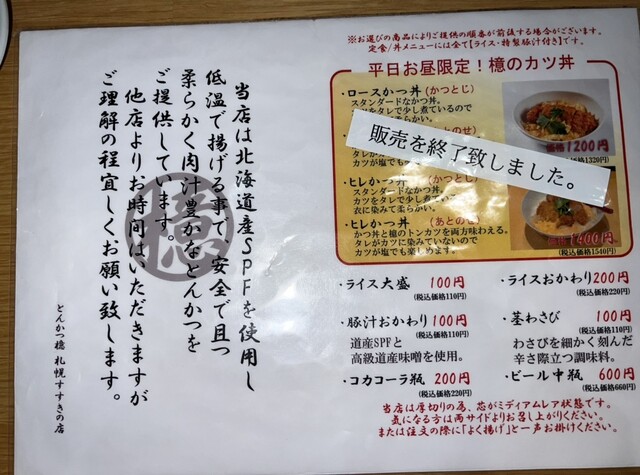 当店は北海道産SPFを使用し
低温で揚げる事で、安全で且つ
柔らかく肉汁豊かなとんかつを
ご提供しています。
他店よりお時間はいただきますが
ご理解の程宜しくお願い致します。
とんかつ檍 札幌すすきの店
檍
※お選びの商品によりご提供の順番が前後する場合がございます。
定食/丼メニューには全て【ライス・特製豚汁付き】です。
平日お昼限定！檍のカツ丼
・ロースかつ丼(かつとじ)
スタンダードなカツ丼。
カツをタレで少し煮ているので
価格1200円
(税込価格1320円)
販売を終了致しました。
カツが塩でも
・ヒレかつ丼(かつとじ)
スタンダードなカツ丼。
カツをタレで少し煮ているので
衣に染みて柔らかい。
・ヒレかつ丼(あとのせ)
かつ丼と檍のトンカツを両方味わえる。
タレがカツに染みていないので
カツが塩でも楽しめます。
1400円
(税込価格1540円)
・ライス大盛 100円
(税込価格110円)
・ライスおかわり200円
(税込価格220円)
・豚汁おかわり100円
(税込価格110円)
道産SPFと
高級道産味噌を使用。
・茎わさび 100円
(税込価格110円)
わさびを細かく刻んだ
辛さ際立つ調味料。
・コカコーラ瓶 200円
(税込価格220円)
・ビール中瓶 600円
(税込価格660円)
当店は厚切りの為、芯がミディアムレア状態です。
気になる方は両サイドよりお召し上がりください。
または注文の際に「よく揚げ」と一声お掛けください。